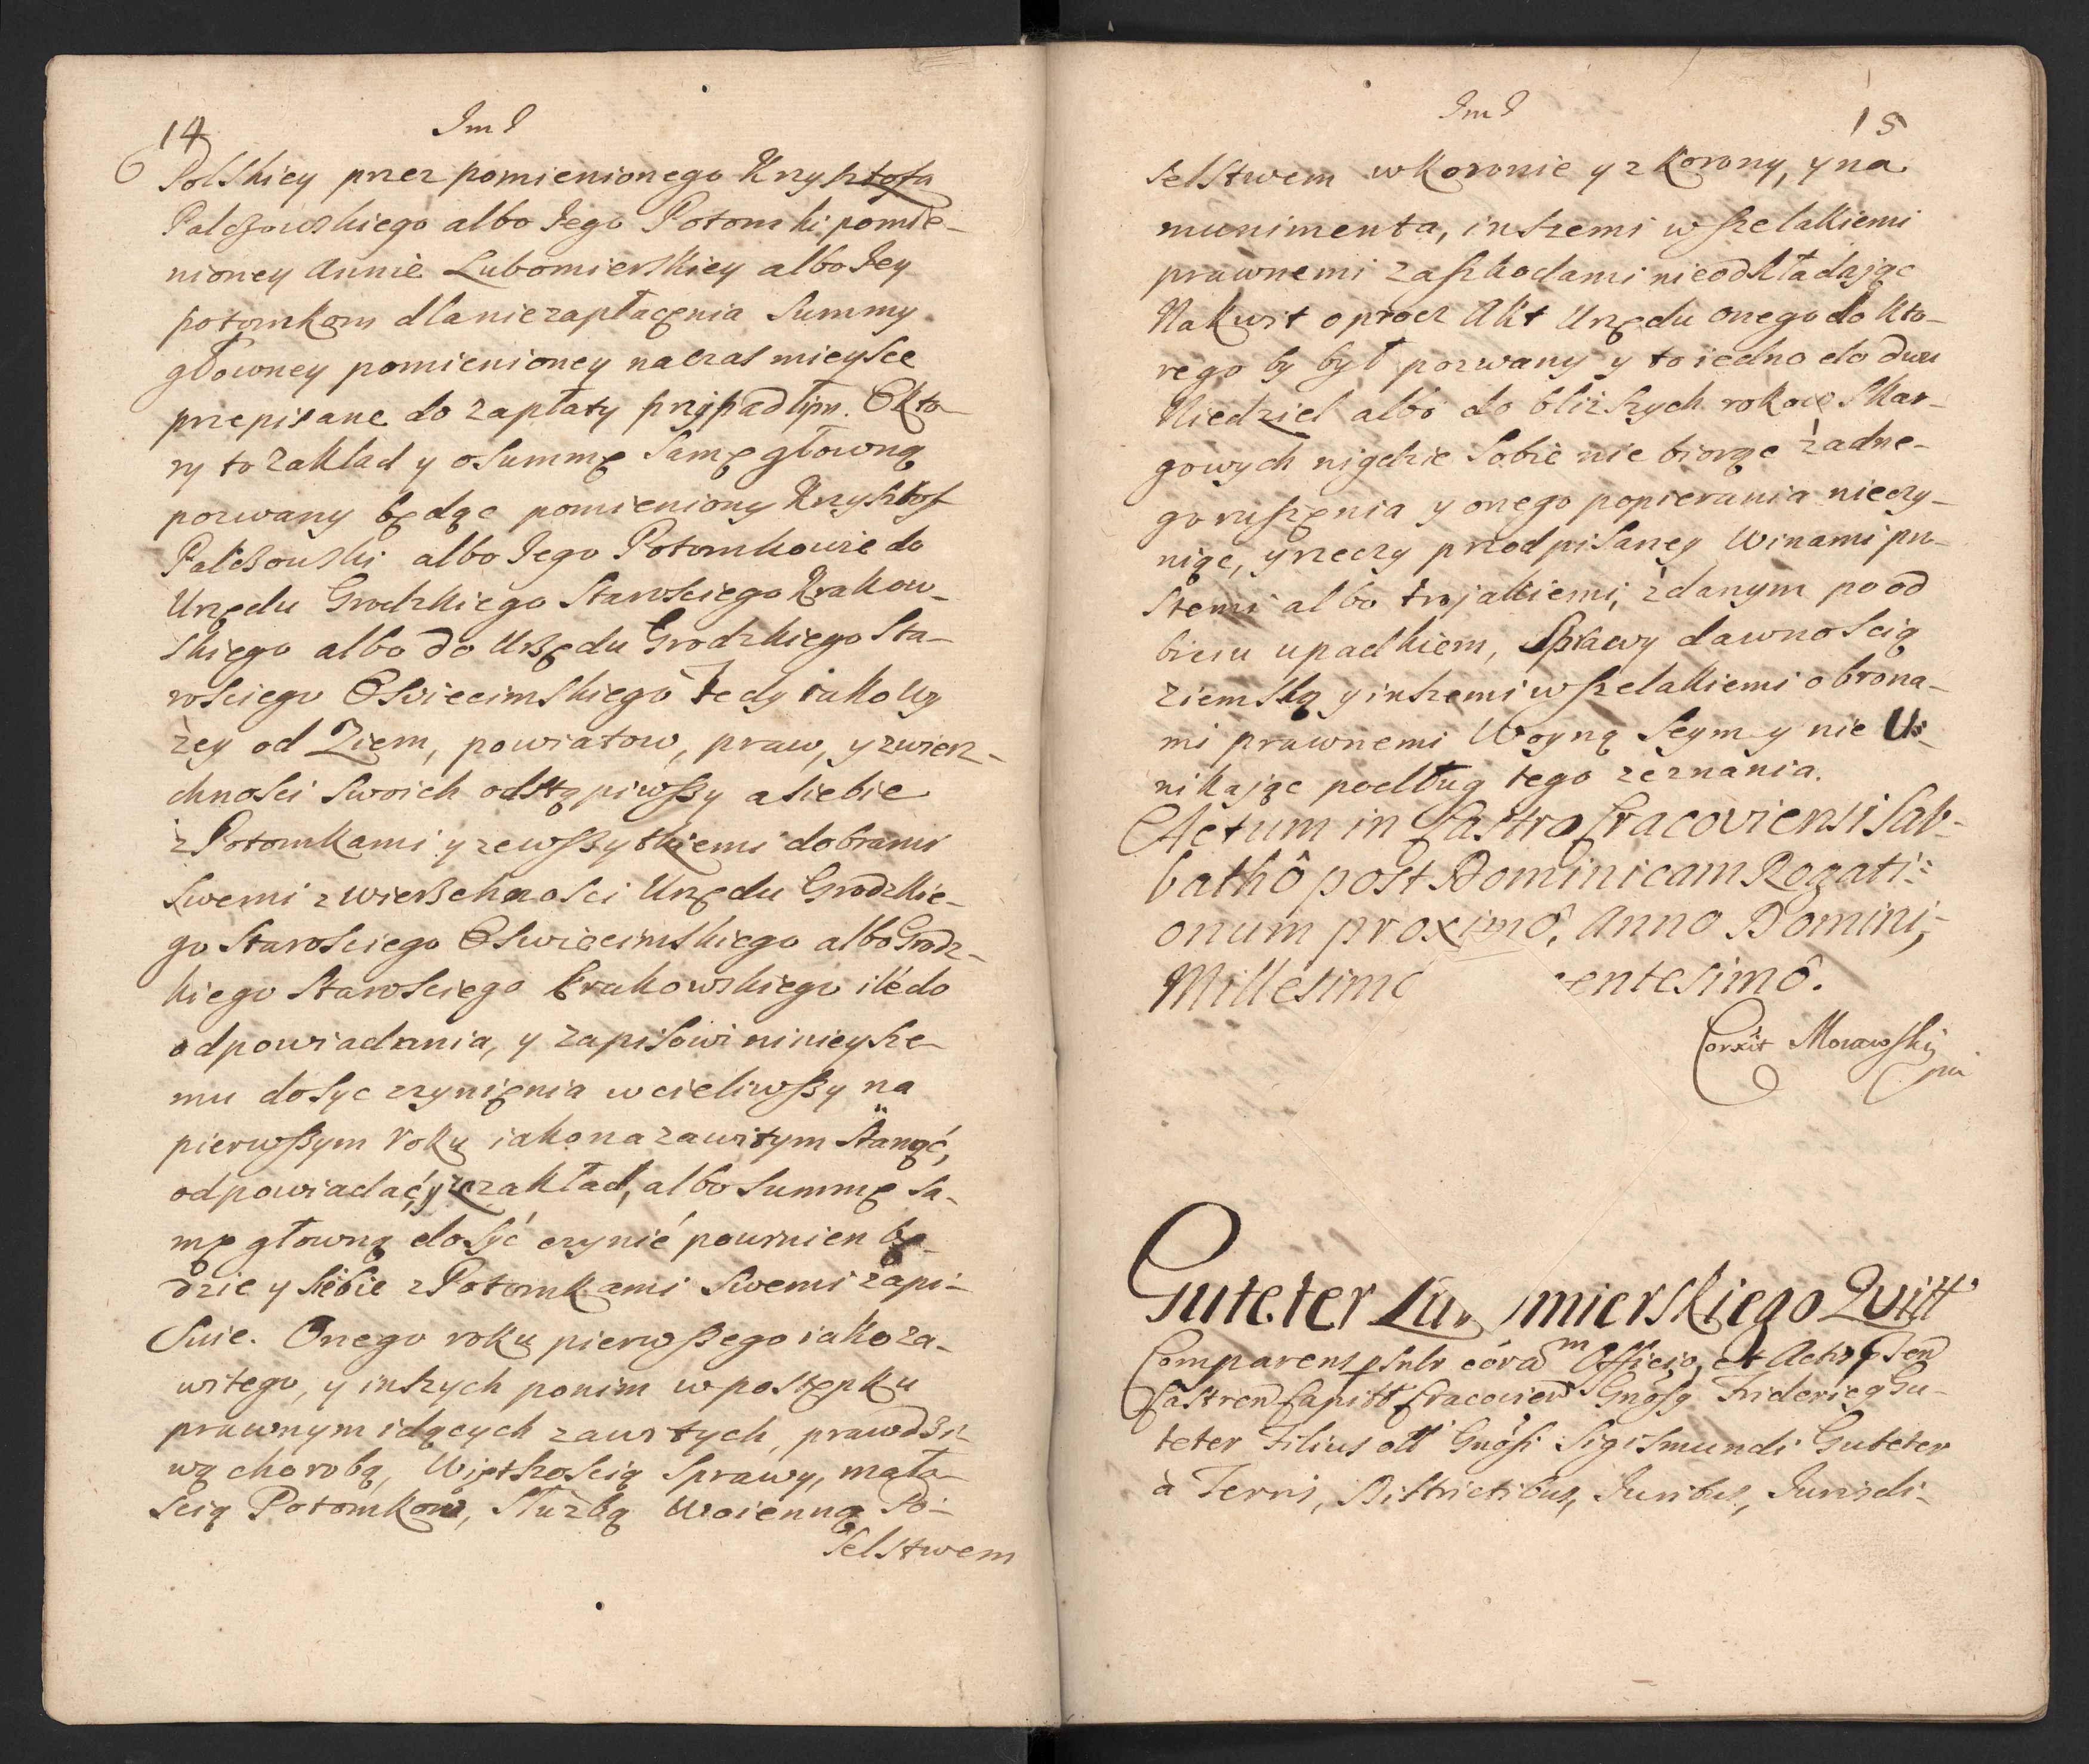 14
Im I
Polskiey przez pomienionego Krysztofa
Palczowskiego albo Jego Potomki pomie-
nioney Annie Lubomierskiey albo Jey
potomkom dla niezapłacęnia Summy
głowney pomienioney na czas mieysce
przepisane do zapłaty przypadłym. O kto-
ry to zakład y o summę samę głowną
pozwany będąc pomieniony Krysztof
Palczowski albo Jego Potomkowie do
Urzędu Grodzkiego Starosciego Krakow-
skiego albo do Urzędu Grodzkiego Sta-
rosciego Oswiecimskiego tedy iako wy
zey od Ziem, powiatow, praw, y zwierz-
chnosci swoich odstąpiwszy a siebie
z Potomkami y ze wszytkiemi dobrami
swemi zwierzchnosci Urzędu Grodzkie-
go Starosciego Oswiecimskiego albo Grodz-
kiego Starosciego Krakowskiego ile do
odpowiadania, y zapisowi ninieysze-
mu dosyc czynięnia wcieliwszy na
pierwszym roku iako na zawitym stanąć,
odpowiadać, y zakład, albo summę sa-
mę głowną dosyć czynić powinien bę-
dzie y siebie z Potomkami swemi zapi-
suie. Onego roku pierwszego iako za-
witego, y inszych ponim w postępku
prawnym idących zawitych, prawdzi-
wą chorobą, Więtszością sprawy, mało-
scią Potomkow, służbą woienną Po-
selstwem
Im I
15
selstwem w Koronie y z Korony, y na
munimenta, inszemi wszelakiemi
prawnemi zaszkodami nieodkładając
Na kwit oprocz Akt Urzędu onego do kto-
rego by był pozwany y to iedno do dwu
Niedziel albo do bliższych rokow Skar-
gowych nigdzie sobie nie biorąc żadne-
go ruszęnia y onego popierania nieczy-
niąc, y rzeczy przodpisaney winami pu-
stemi albo trojakiemi, zdanym pood
biciu upadkiem, sprawy dawnoscią
ziemską y inszemi wszelakiemi obrona-
mi prawnemi Woyną Seymy nie U-
nikając podług tego zeznania.
Actum in Castro Cracoviensi Sab-
bathô post Dominicam Rogati-
onum proximô, Anno Domini,
Millesimo entesimô.
Corxit Morawski
Guteter Lu mierskiego Quitt
Comparens psnlr corã Officio, et Actis
Castren Capitl Cracovien Gnosg Fridericg Gu-
teter Filius olĩ Gnosi Sigismundi Guteter
à Terris, Districtibus, Juribus, Jurisdi-